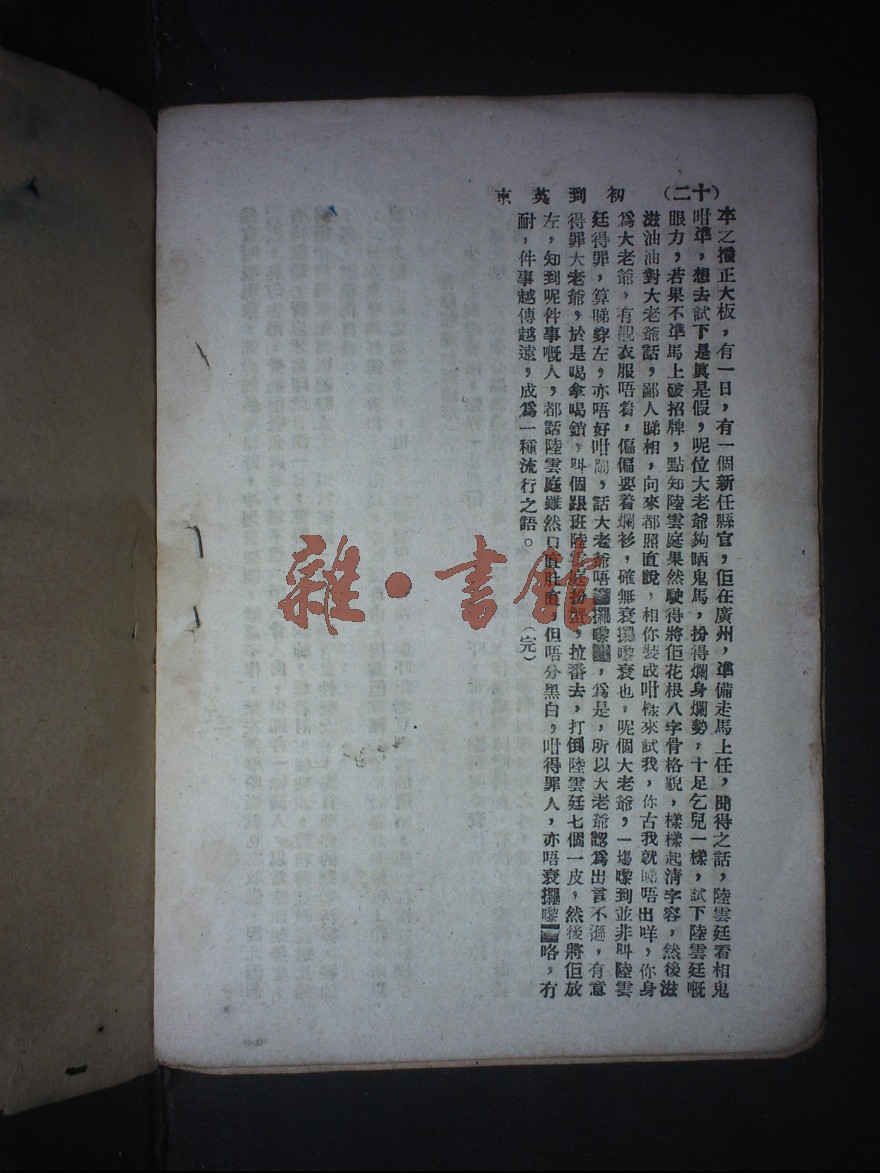 (二十) 初到英京
本之擸正大板，有一日，有一個新任縣官，佢在廣州，準備走馬上任，聞得之話，陸雲廷看相鬼
咁準，想去試下是眞是假，呢位大老爺夠晒鬼馬，扮得爛身爛勢，十足乞兒一樣，試下陸雲廷嘅
眼力，若果不準馬上破招牌，點知陸雲庭果然駛得將佢花根八字骨格貌，樣樣起清字容，然後滋
滋油油對大老爺話，鄙人睇相，向來都照直說，相你裝成咁樣來試我，你古我就睇唔出咩，你身
爲大老爺，有靚衣服唔着，偏偏要着爛衫，確無衰攞嚟衰也，呢個大老爺，一塲嚟到並非叫陸雲
廷得罪，算睇穿左，亦唔好咁鬧，話大老爺唔 攞嚟 ，爲是，所以大老爺認爲出言不遜，有意
得罪大老爺，於是喝拿喝鎖，叫個跟班陸雲庭扮蟹，拉番去，打倒陸雲廷七個一皮，然後將佢放
左，知到呢件事嘅人，都話陸雲庭雖然口直肚直，但唔分黑白，咁得罪人，亦唔衰攞嚟 咯，冇
耐，件事越傳越遠，成爲一種流行之語。 (完)
雜·書館